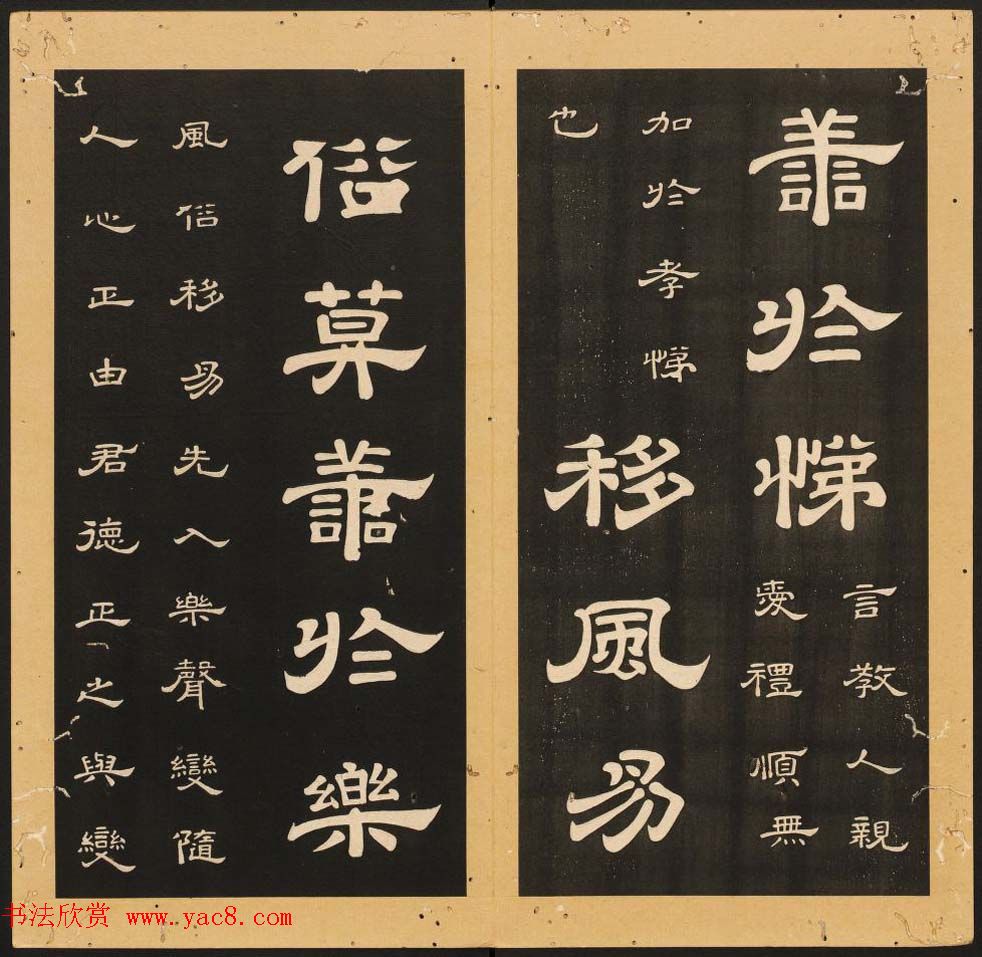 譱於悌
言教人親
愛禮順無
加於孝悌
也
移風易
俗莫譱於樂
風俗移易先入樂聲變隨
人心正由君德正之與變
书法欣赏 www.yac8.com